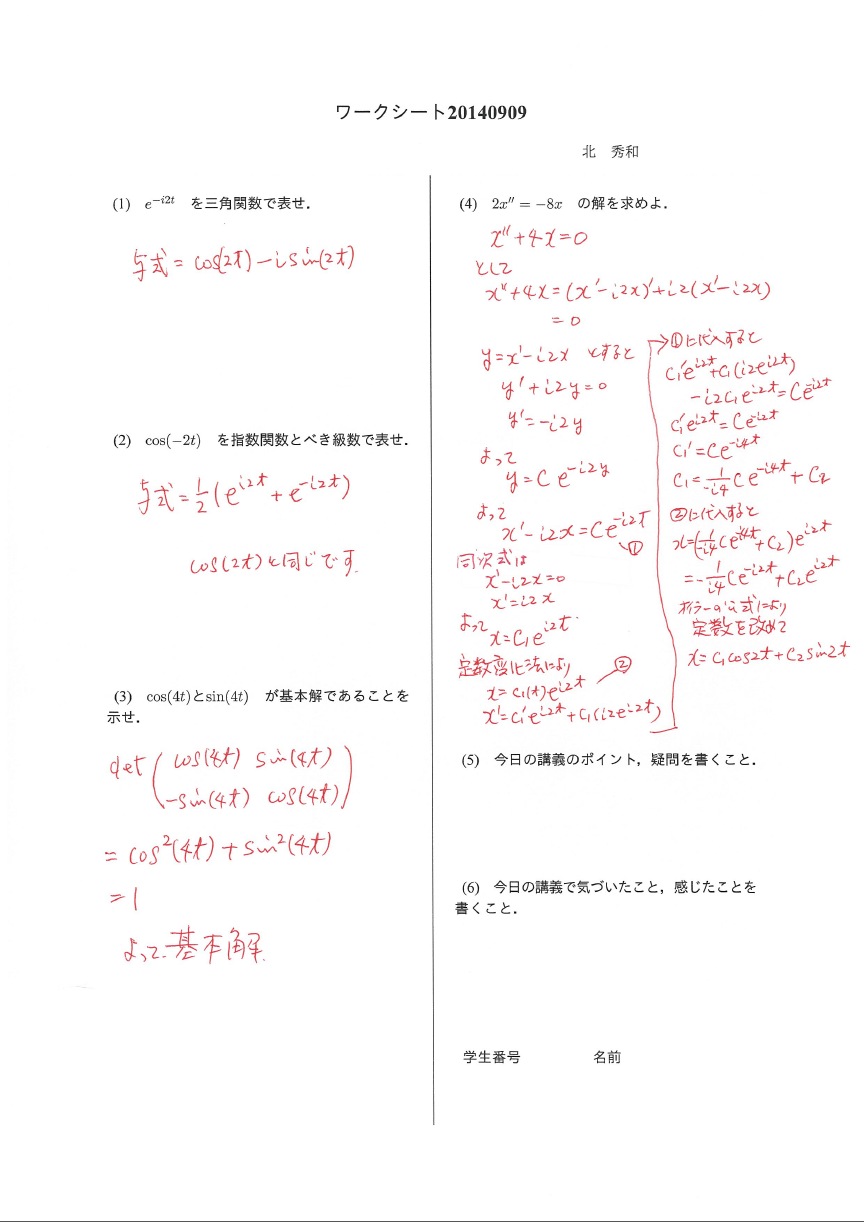 ワークシート20140909
北 秀和
(1) e^{-i2t} を三角関数で表せ．
与式 = cos(2t) − i sin(2t)
(2) cos(−2t) を指数関数とべき級数で表せ．
与式 = 1/2 (e^{i2t} + e^{-i2t})
cos(2t)と同じです.
(3) cos(4t)とsin(4t) が基本解であることを
示せ．
det ( cos(4t) sin(4t)
−sin(4t) cos(4t) )
= cos²(4t) + sin²(4t)
= 1
よって、基本解.
(4) 2x″ = −8x の解を求めよ．
x″+4x=0
として
x″+4x=(x′−i2x)′+i2(x′−i2x)
=0
y=x′−i2x とすると
y′+i2y=0
y′=−i2y
よって
y=C e^{-i2y}
よって
x′−i2x=Ce^{-i2t}
①
同次式は
x′−i2x=0
x′=i2x
よって
x=C₁e^{i2t}
定数変化法により
②
x=C₁(t)e^{i2t}
x′=C₁′e^{i2t}+C₁(i2e^{i2t})
①に代入すると
C₁′e^{i2t}+C₁(i2e^{i2t})
−i2C₁e^{i2t}=Ce^{-i2t}
C₁′e^{i2t}=Ce^{-i2t}
C₁′=Ce^{-i4t}
C₁=1/−i4 Ce^{-i4t}+C₂
②に代入すると
x=(1/−i4 Ce^{-i4t}+C₂)e^{i2t}
=−1/i4 Ce^{-i2t}+C₂e^{i2t}
オイラーの公式により
定数を改めて
x=C₁cos2t+C₂sin2t
(5) 今日の講義のポイント，疑問を書くこと．
(6) 今日の講義で気づいたこと，感じたことを
書くこと．
学生番号 名前